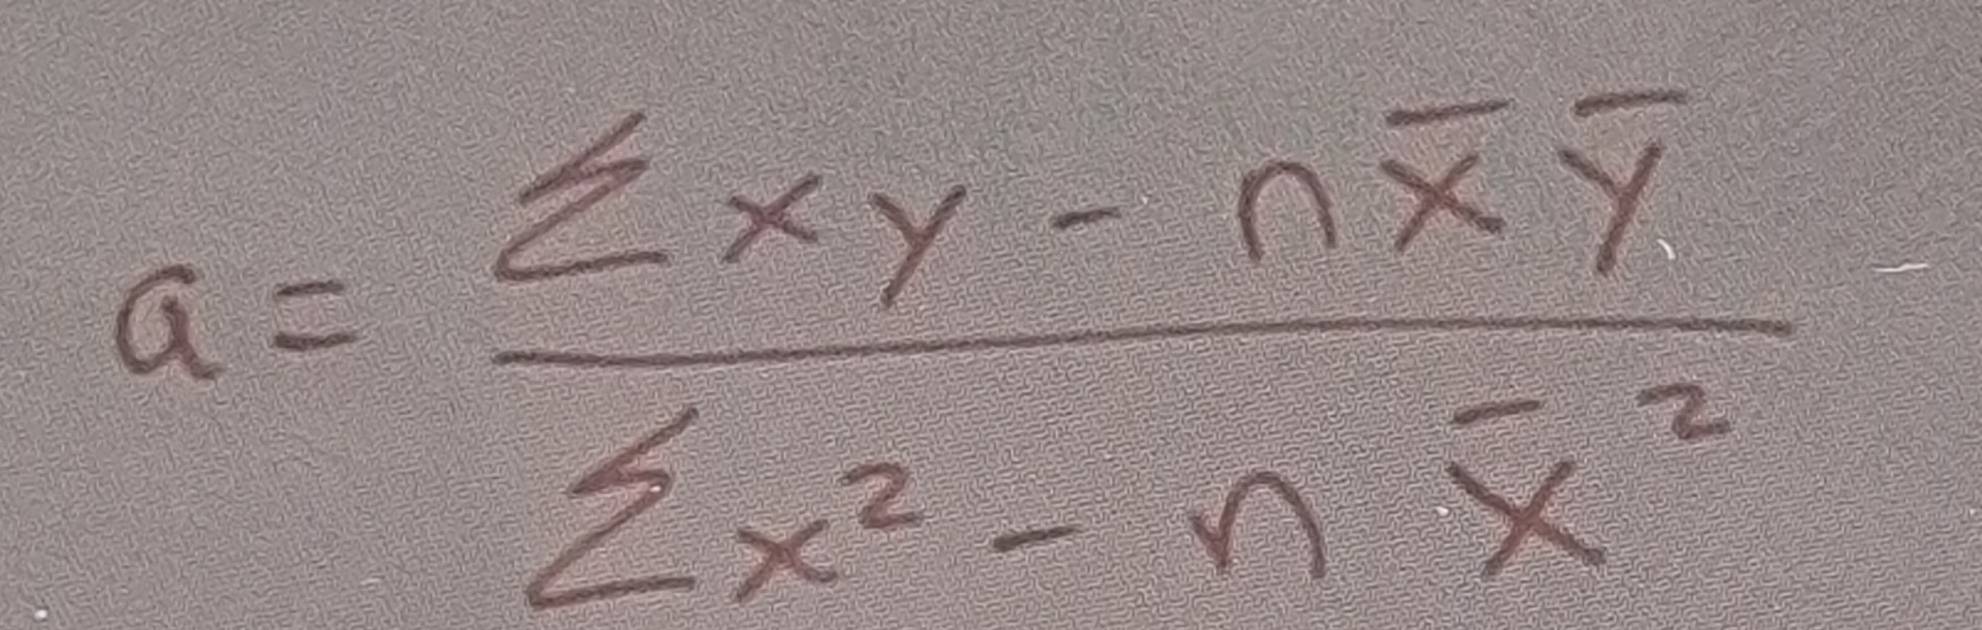 a = \frac{\sum xy - n\bar{x}\bar{y}}{\sum x^2 - n\bar{x}^2}